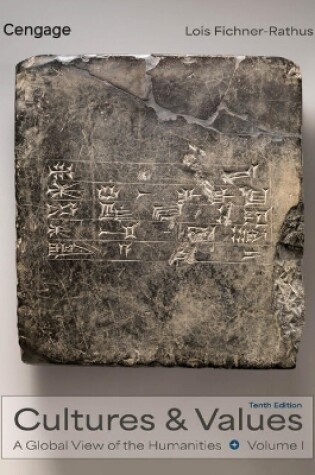 Cengage
Lois Fichner-Rathus
Tenth Edition
Cultures & Values
A Global View of the Humanities + Volume I